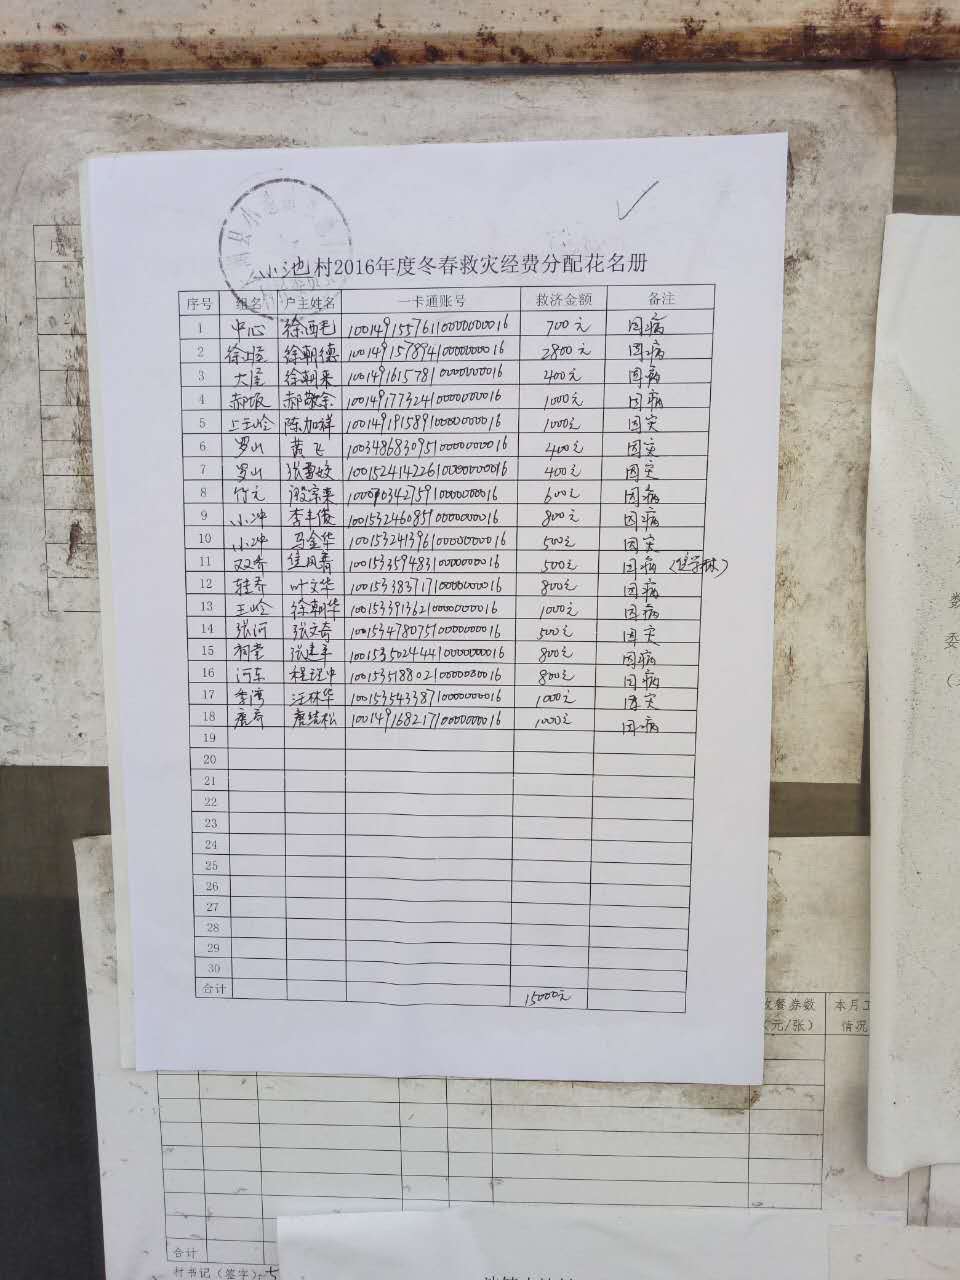 小池村2016年度冬春救灾经费分配花名册
序号 组名 户主姓名 一卡通账号 救济金额 备注
1 中心 徐西毛 1001491557611000000016 700元 因病
2 徐上屋 徐朝德 1001491578941000000016 2800元 因病
3 大屋 徐朝来 1001491615781000000016 400元 因病
4 郝坂 郝敬余 1001491773241000000016 1000元 因病
5 上王岭 陈加祥 1001491915891000000016 1000元 因灾
6 罗山 黄飞 1003486830951000000016 400元 因灾
7 罗山 张雪姣 1001524142261000000016 400元 因灾
8 竹元 殷宗来 600元 因病
9 小冲 李丰俊 1001532460851000000016 800元 因病
10 小冲 马金华 1001532413961000000016 500元 因灾
11 双乔 1001533594831000000016 500元 因病
12 桂乔 叶文华 1001533837171000000016 800元 因病
13 王岭 徐朝华 1001533913621000000016 1000元 因病
14 张河 张文奇 1001534780751000000016 500元 因灾
15 祠堂 张建平 1001535024441000000016 800元 因病
16 河东 程理中 1001535188021000000016 800元 因病
17 季湾 汪林华 1001535433871000000016 1000元 因灾
18 唐乔 唐结松 1001491682171000000016 1000元 因病
19
20
21
22
23
24
25
26
27
28
29
30
合计 15000元
餐券数 本月工
(元/张) 情况
合计
村书记(签字)